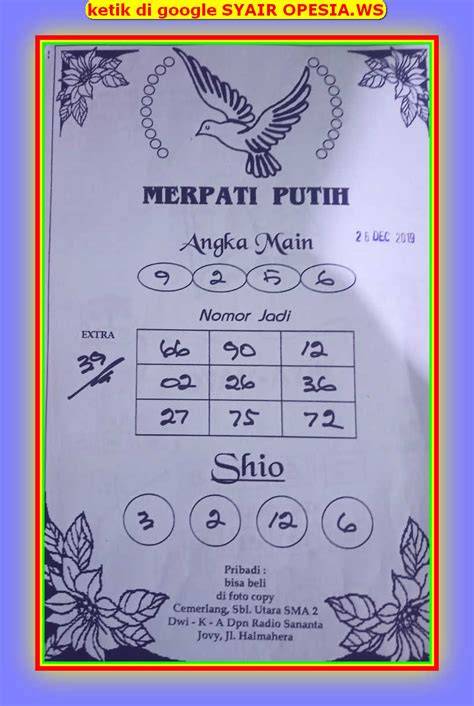 ketik di google SYAIR OPESIA.WS
MERPATI PUTIH
Angka Main
26 DEC 2019
9 2 5 6
Nomor Jadi
EXTRA
39
66 90 12
02 26 36
27 75 72
Shio
3 2 12 6
Pribadi :
bisa beli
di foto copy
Cemerlang, Sbl. Utara SMA 2
Dwi - K - A Dpn Radio Sananta
Jovy, Jl. Halmahera